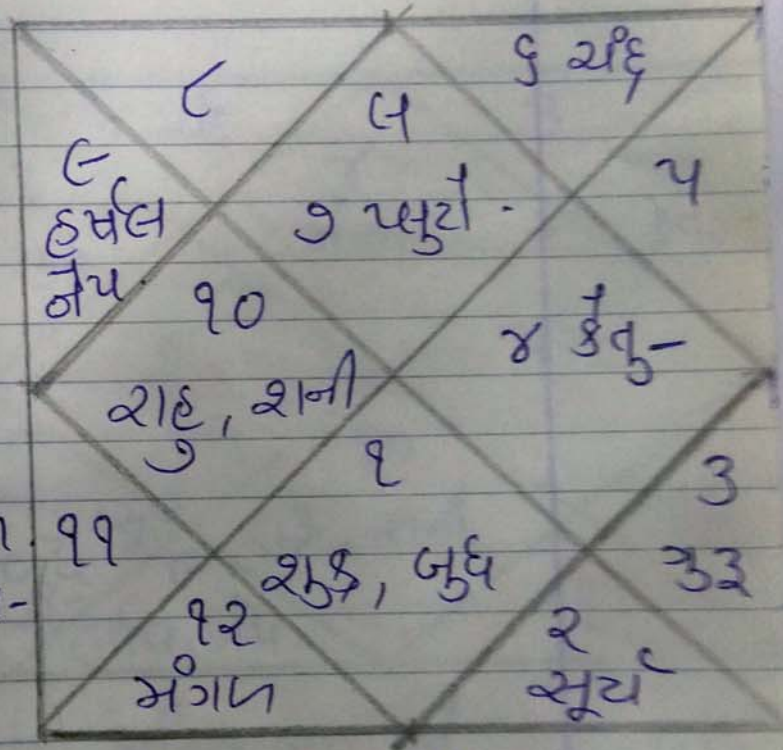 ૮
લ
૬ ચંદ્ર
૯
હર્ષલ
નેપ.
૭ પ્લુટો -
૫
૧૦
રાહુ, શની
૪ કેતુ -
૧
૩
ગુરૂ
૧૧
શુક્ર, બુધ
૧૨
મંગળ
૨
સૂર્ય